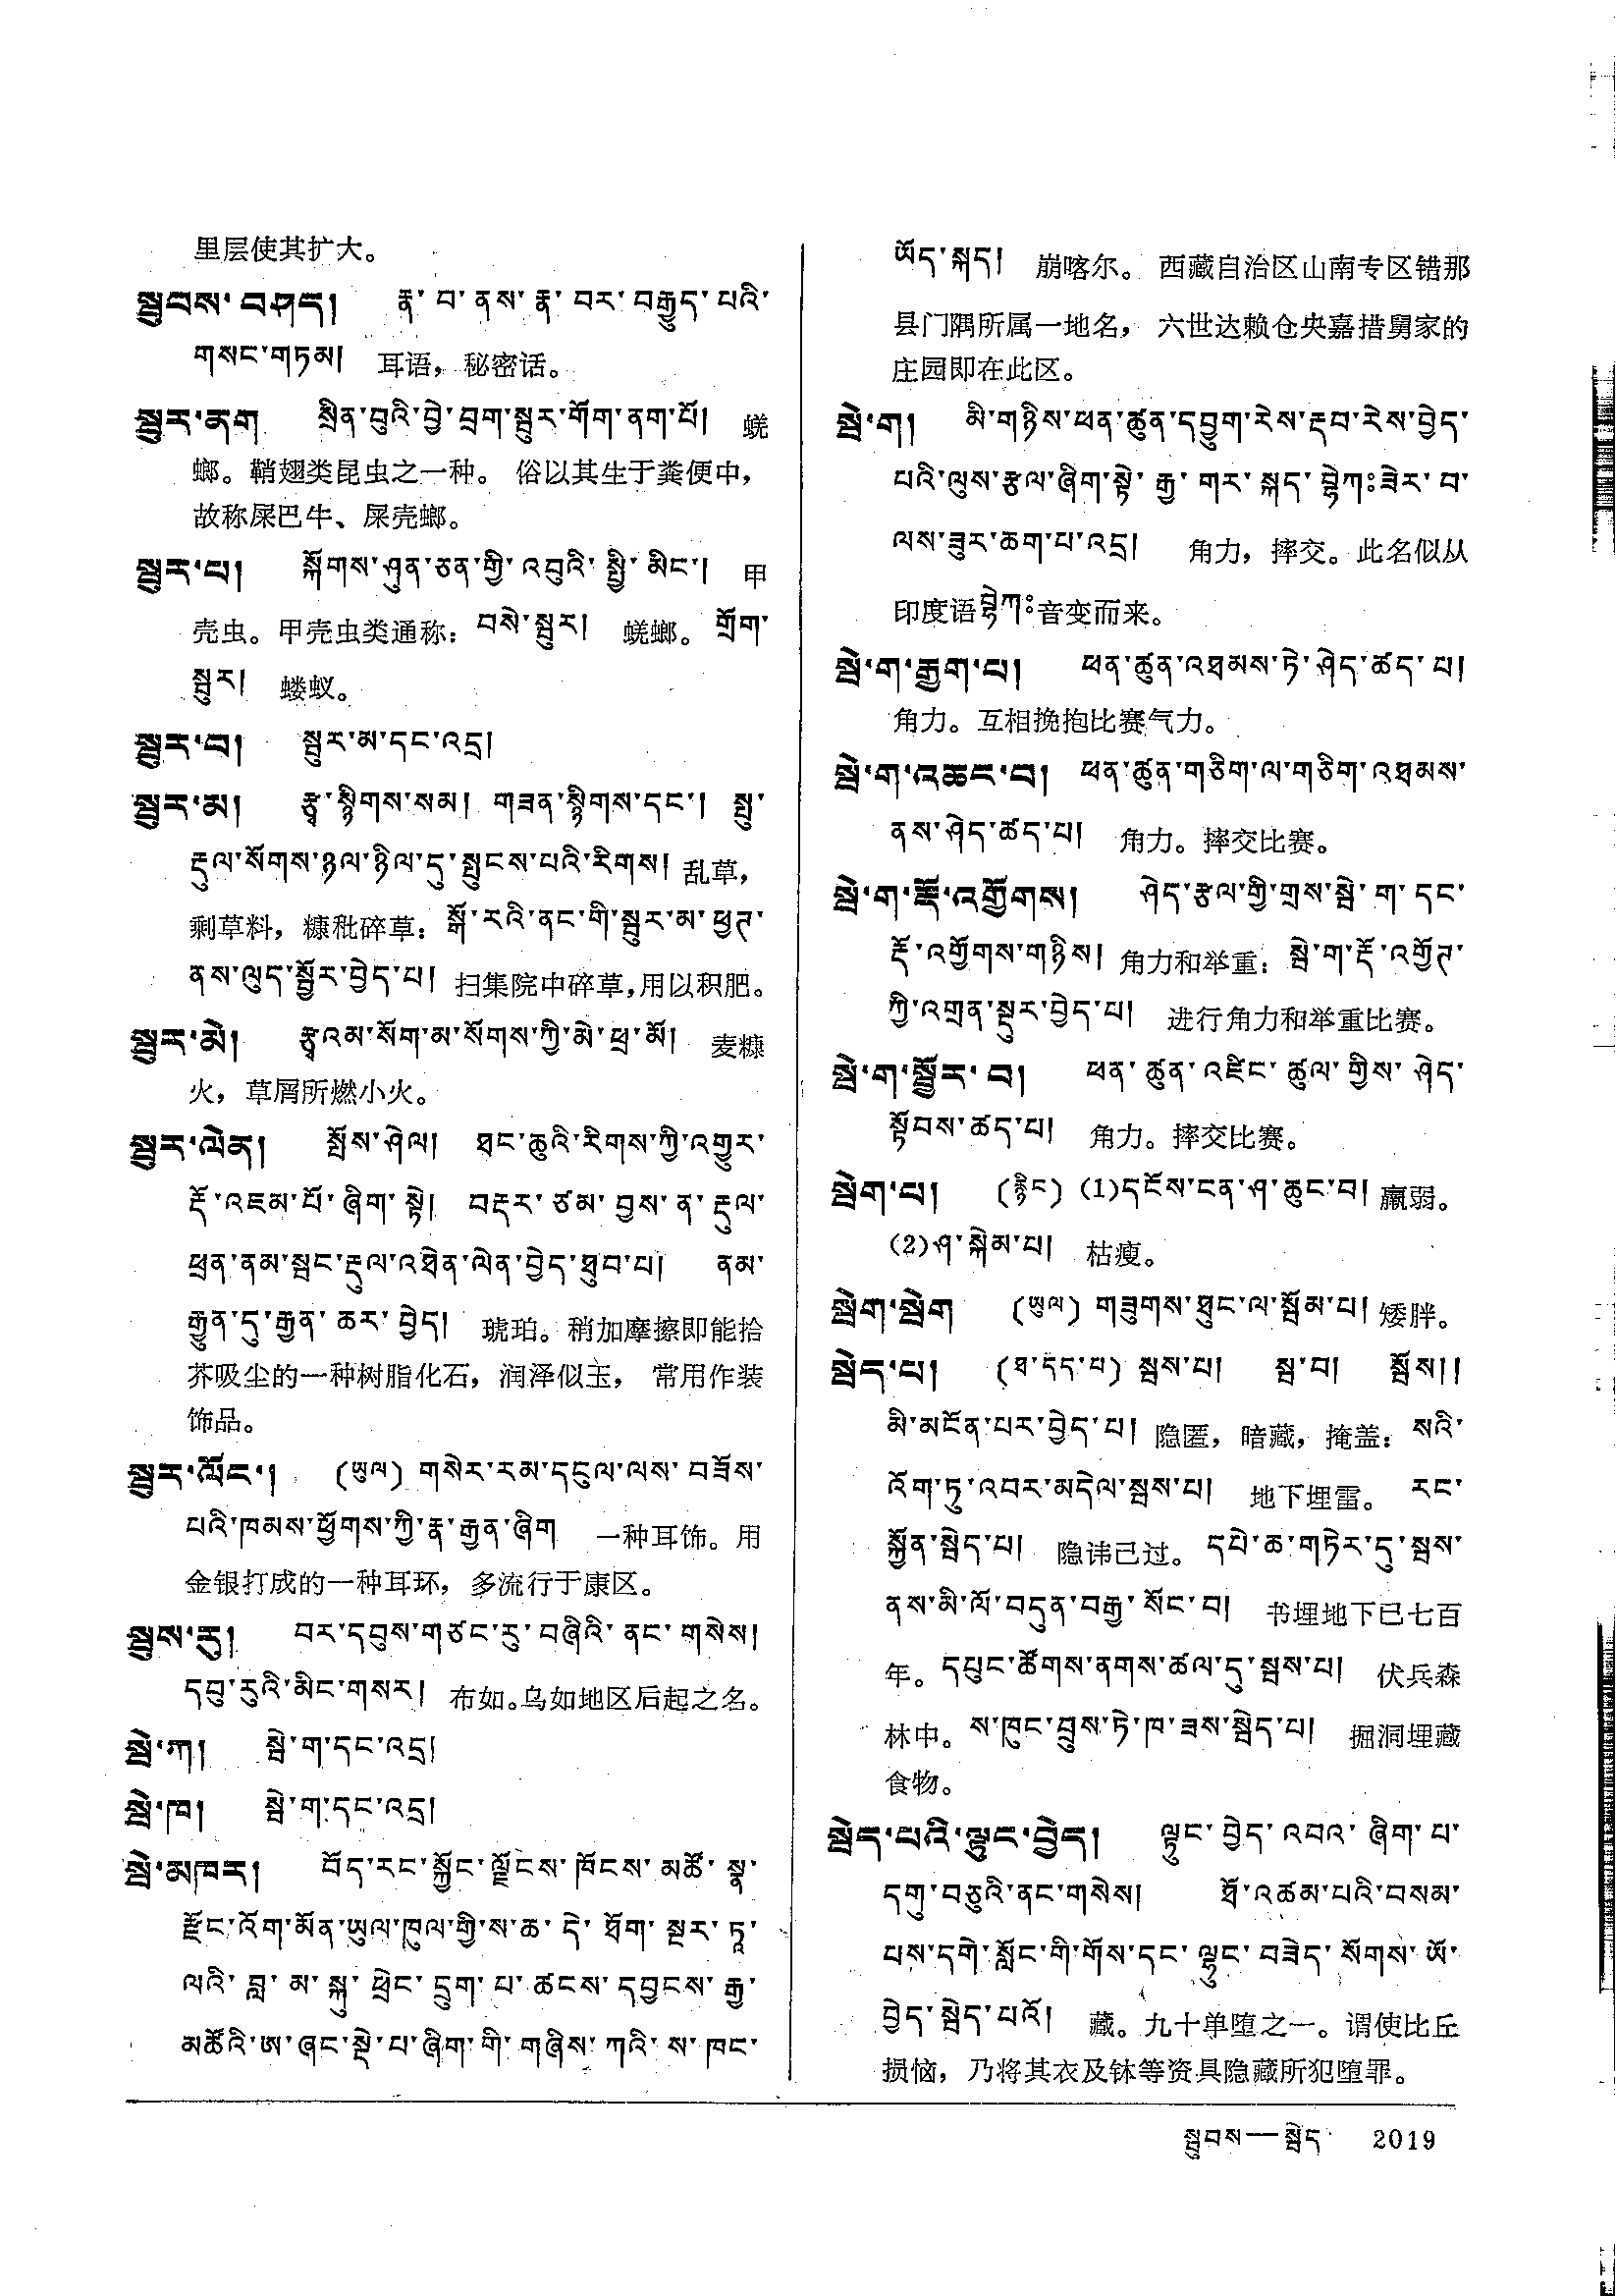 里层使其扩大。
སྦུབས་བཤད། རྣ་བ་ནས་རྣ་བར་བརྒྱུད་པའི་
གསང་གཏམ། 耳语，秘密话。
སྦུར་ནག སྲིན་བུའི་བྱེ་བྲག་སྦུར་གོག་ནག་པོ། 蜣
螂。鞘翅类昆虫之一种。俗以其生于粪便中，
故称屎巴牛、屎壳螂。
སྦུར་པ། སྐོགས་ཤུན་ཅན་གྱི་འབུའི་སྤྱི་མིང་། 甲
壳虫。甲壳虫类通称：བསེ་སྦུར། 蜣螂。གྲོག་
སྦུར། 蝼蚁。
སྦུར་བ། སྦུར་མ་དང་འདྲ།
སྦུར་མ། རྩྭ་སྙིགས་སམ། གཟན་སྙིགས་དང་། སྤུ་
རྡུལ་སོགས་ཉལ་ཉིལ་དུ་སྤུངས་པའི་རིགས། 乱草，
剩草料，糠秕碎草：སྒོ་རའི་ནང་གི་སྦུར་མ་ཕྱག་
ནས་ལུད་སྦྱོར་བྱེད་པ། 扫集院中碎草，用以积肥。
སྦུར་མེ། རྩྭའམ་སོག་མ་སོགས་ཀྱི་མེ་ཕྲ་མོ། 麦糠
火，草屑所燃小火。
སྦུར་ལེན། སྤོས་ཤེལ། ཐང་ཆུའི་རིགས་ཀྱི་འགྱུར་
རྡོ་འཇམ་པོ་ཞིག་སྟེ། བརྡར་ཙམ་བྱས་ན་རྡུལ་
ཕྲན་ནམ་སྦང་རྡུལ་འཐེན་ལེན་བྱེད་ཐུབ་པ། ནམ་
རྒྱུན་དུ་རྒྱན་ཆར་བྱེད། 琥珀。稍加摩擦即能拾
芥吸尘的一种树脂化石，润泽似玉，常用作装
饰品。
སྦུར་ལོང་། (ཡུལ) གསེར་རམ་དངུལ་ལས་བཟོས་
པའི་ཁམས་ཕྱོགས་ཀྱི་རྣ་རྒྱན་ཞིག 一种耳饰。用
金银打成的一种耳环，多流行于康区。
སྦུས་རུ། བར་དབུས་གཙང་རུ་བཞིའི་ནང་གསེས།
དབུ་རུའི་མིང་གསར། 布如。乌如地区后起之名。
སྦེ་ཀ། སྦེ་ག་དང་འདྲ།
སྦེ་ཁ། སྦེ་ག་དང་འདྲ།
སྦེ་མཁར། བོད་རང་སྐྱོང་ལྗོངས་ཁོངས་མཚོ་སྣ་
རྫོང་འོག་མོན་ཡུལ་ཁུལ་གྱི་ས་ཆ་དེ་ཐོག་སྔར་ཏཱ་
ལའི་བླ་མ་སྐུ་ཕྲེང་དྲུག་པ་ཚངས་དབྱངས་རྒྱ་
མཚོའི་ཨ་ཞང་སྡེ་པ་ཞིག་གི་གཞིས་ཀའི་ས་ཁང་
ཡོད་སྐད། 崩喀尔。西藏自治区山南专区错那
县门隅所属一地名，六世达赖仓央嘉措舅家的
庄园即在此区。
སྦེ་ག། མི་གཉིས་ཕན་ཚུན་དབྱུག་རེས་རྡབ་རེས་བྱེད་
པའི་ལུས་རྩལ་ཞིག་སྟེ་རྒྱ་གར་སྐད་བྷེཀཿཟེར་བ་
ལས་ཟུར་ཆག་པ་འདྲ། 角力，摔交。此名似从
印度语བྷེཀཿ音变而来。
སྦེ་ག་རྒྱག་པ། ཕན་ཚུན་འཐམས་ཏེ་ཤེད་ཚད་པ།
角力。互相挽抱比赛气力。
སྦེ་ག་འཆང་བ། ཕན་ཚུན་གཅིག་ལ་གཅིག་འཐམས་
ནས་ཤེད་ཚད་པ། 角力。摔交比赛。
སྦེ་ག་རྡོ་འགྱོགས། ཤེད་རྩལ་གྱི་གྲས་སྦེ་ག་དང་
རྡོ་འགྱོགས་གཉིས། 角力和举重：སྦེ་ག་རྡོ་འགྱོག་
ཀྱི་འགྲན་སྡུར་བྱེད་པ། 进行角力和举重比赛。
སྦེ་ག་སྦྱོར་བ། ཕན་ཚུན་འཛིང་ཚུལ་གྱིས་ཤེད་
སྟོབས་ཚད་པ། 角力。摔交比赛。
སྦེག་པ། (རྙིང) (1)དངོས་ངན་ཤ་ཆུང་བ། 羸弱。
(2)ཤ་སྐེམ་པ། 枯瘦。
སྦེག་སྦེག (ཡུལ) གཟུགས་ཐུང་ལ་སྦོམ་པ། 矮胖。
སྦེད་པ། (ཐ་དད་པ) སྦས་པ། སྦ་བ། སྦོས།།
མི་མངོན་པར་བྱེད་པ། 隐匿，暗藏，掩盖：སའི་
འོག་ཏུ་འབར་མདེལ་སྦས་པ། 地下埋雷。 རང་
སྐྱོན་སྦེད་པ། 隐讳己过。དཔེ་ཆ་གཏེར་དུ་སྦས་
ནས་མི་ལོ་བདུན་བརྒྱ་སོང་བ། 书埋地下已七百
年。དཔུང་ཚོགས་ནགས་ཚལ་དུ་སྦས་པ། 伏兵森
林中。ས་ཁུང་བྲུས་ཏེ་ཁ་ཟས་སྦེད་པ། 掘洞埋藏
食物。
སྦེད་པའི་ལྟུང་བྱེད། ལྟུང་བྱེད་འབའ་ཞིག་པ་
དགུ་བཅུའི་ནང་གསེས། ཐོ་འཚམ་པའི་བསམ་
པས་དགེ་སློང་གི་གོས་དང་ལྷུང་བཟེད་སོགས་ཡོ་
བྱེད་སྦེད་པའོ། 藏。九十单堕之一。谓使比丘
损恼，乃将其衣及钵等资具隐藏所犯堕罪。
སྦུབས—སྦེད 2019